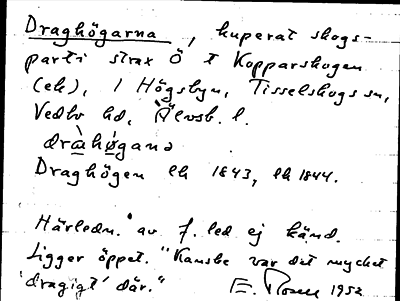 Draghögarna, kuperat skogs-
parti strax Ö t Kopparskogen
(ek), 1 Högsbyn, Tisselskogs sn,
Vedbo hd, Älvsb. l.
Draghögen lk 1843, lk 1844.
Härledn. av f. led ej känd.
Ligger öppet. "Kanske var det mycket
'dragigt' där."
E. 1952